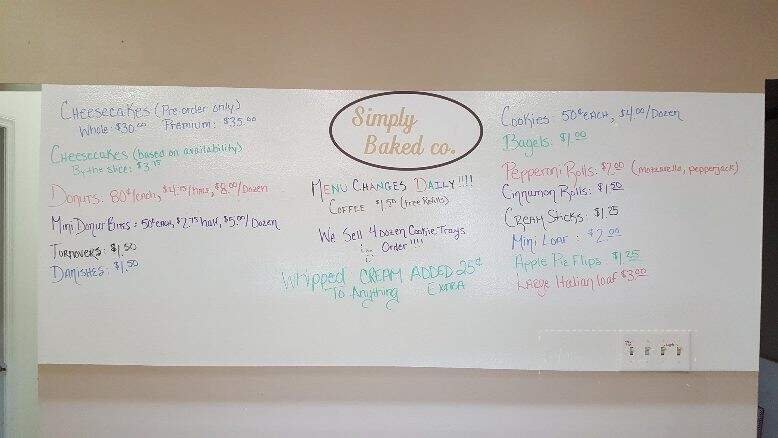 Cheesecakes (Pre-order only)
Whole: $30.00 Premium: $35.00
Cheesecakes (based on availability)
By the slice: $3.75
Donuts: 80¢/each, $4.75/half, $8.00/Dozen
Mini Donut Bites: 50¢each, $2.75 half, $5.00/Dozen
Turnovers: $1.50
Danishes: $1.50
Simply
Baked co.
Menu Changes Daily!!!!
Coffee $1.50 (free Refills)
We Sell 4 Dozen Cookie Trays
Order!!!!
Whipped CREAM ADDED 25¢
To Anything Extra
Cookies 50¢ each, $4.00/Dozen
Bagels: $1.00
Pepperoni Rolls: $2.00 (mozzarella, pepperjack)
Cinnamon Rolls: $1.50
Cream Sticks: $1.25
Mini Loaf: $2.00
Apple Pie Flips $1.25
Large Italian loaf $3.00